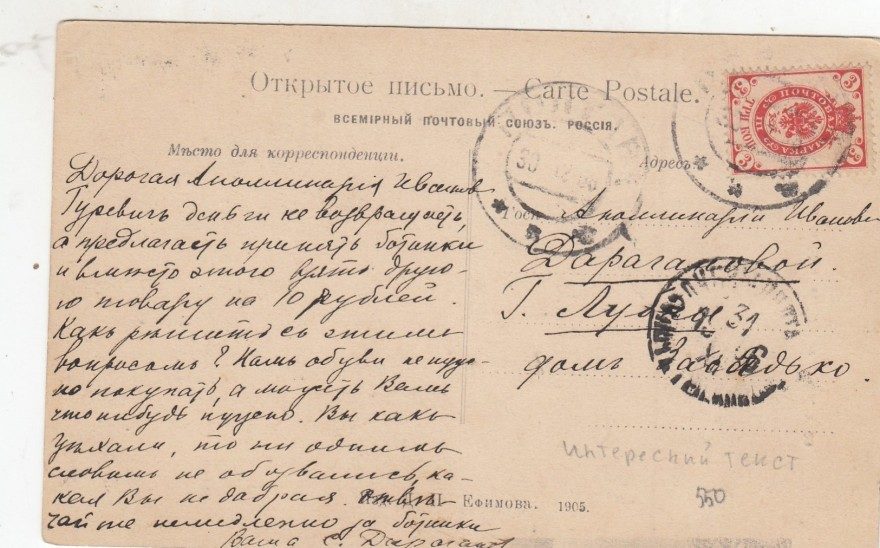 Открытое письмо. — Carte Postale.
ВСЕМІРНЫЙ ПОЧТОВЫЙ СОЮЗЪ. РОССІЯ.
Мѣсто для корреспонденціи.
Адресъ
Дорогая Аполлинарія Иванов
Гуревичъ деньги не возвращаетъ,
а предлагаетъ принять ботинки
и вмѣсто этого взять друго-
го товару на 10 рублей.
Какъ рѣшите съ этимъ
вопросомъ? Намъ обуви не нуж-
но покупать, а можетъ Вамъ
что нибудь нужно. Вы какъ
уѣхали, то ни однимъ
словомъ не обозвались, ка-
кая Вы не добрая
чайте немедленно за ботинки
Ваша С.
Аполлинаріи Иванов
Дарагановой.
Г.
домъ
ПОЧТОВАЯ МАРКА
3
3
3
3
30
31
Ефимова. 1905.
интересный текст
550